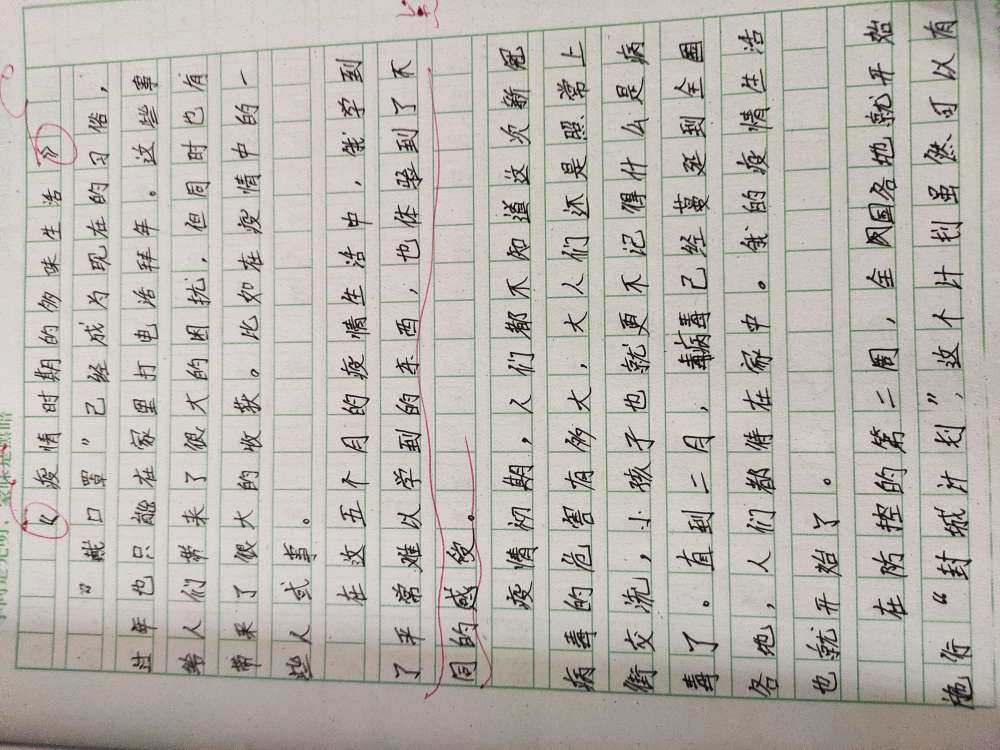 《疫情时期的多味生活》
“戴口罩”已经成为现在的习俗，
过年也只能在家里打电话拜年。这些事
给人们带来了很大的困扰，但同时也有
带来了很大的收获。比如在疫情中的一
些人或事。
在这五个月的疫情生活中，我学到
了平常难以学到的东西，也体验到了不
同的感受。
疫情初期，人们都不知道这次新冠
病毒的危害有多大，大人们还是照常上
街交流，小孩子也就更不记得什么是病
毒了。直到二月，病毒已经蔓延到全国
各地，人们都待在家中。我的疫情生活
也就开始了。
在防控的第二周，全国各地就开始
施行“封城计划”，这个计划虽然可以有